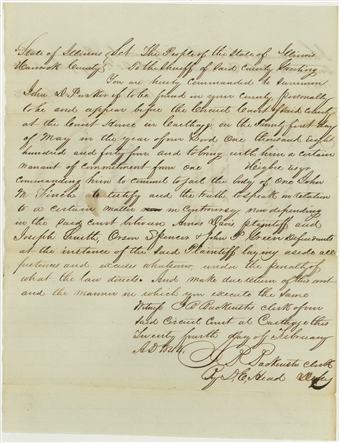 State of Illinois Sct. The People of the State of Illinois
Hancock County To the Sheriff of Said County Greeting
You are hereby commanded to summon
John D. Parker if to be found in your county personally
to be and appear before the Circuit Court of Said County
at the Court House in Carthage on the first day
of May in the year of our Lord One thousand eight
hundred and forty four and to bring with him a certain
warrant of commitment from one Esqr
commanding him to commit to jail the body of one John
M. Finch to testify and the truth to speak in relation
to a certain matter in controversy now depending
in the said court wherein Amos Davis plaintiff and
Joseph Smith, Orson Spencer & John P. Green Defendants
at the instance of the said Plaintiff laying aside all
pretense and excuses whatsoever, under the penalty of
what the law directs And make due return of this writ
and the manner in which you execute the same
Witness J B Backenstos clerk of our
said Circuit Court at Carthage this
Twenty fourth day of February
A.D. 1844.
J. B. Backenstos clerk
By D. E. Head Depty